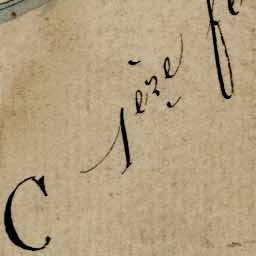 C 1ère fe